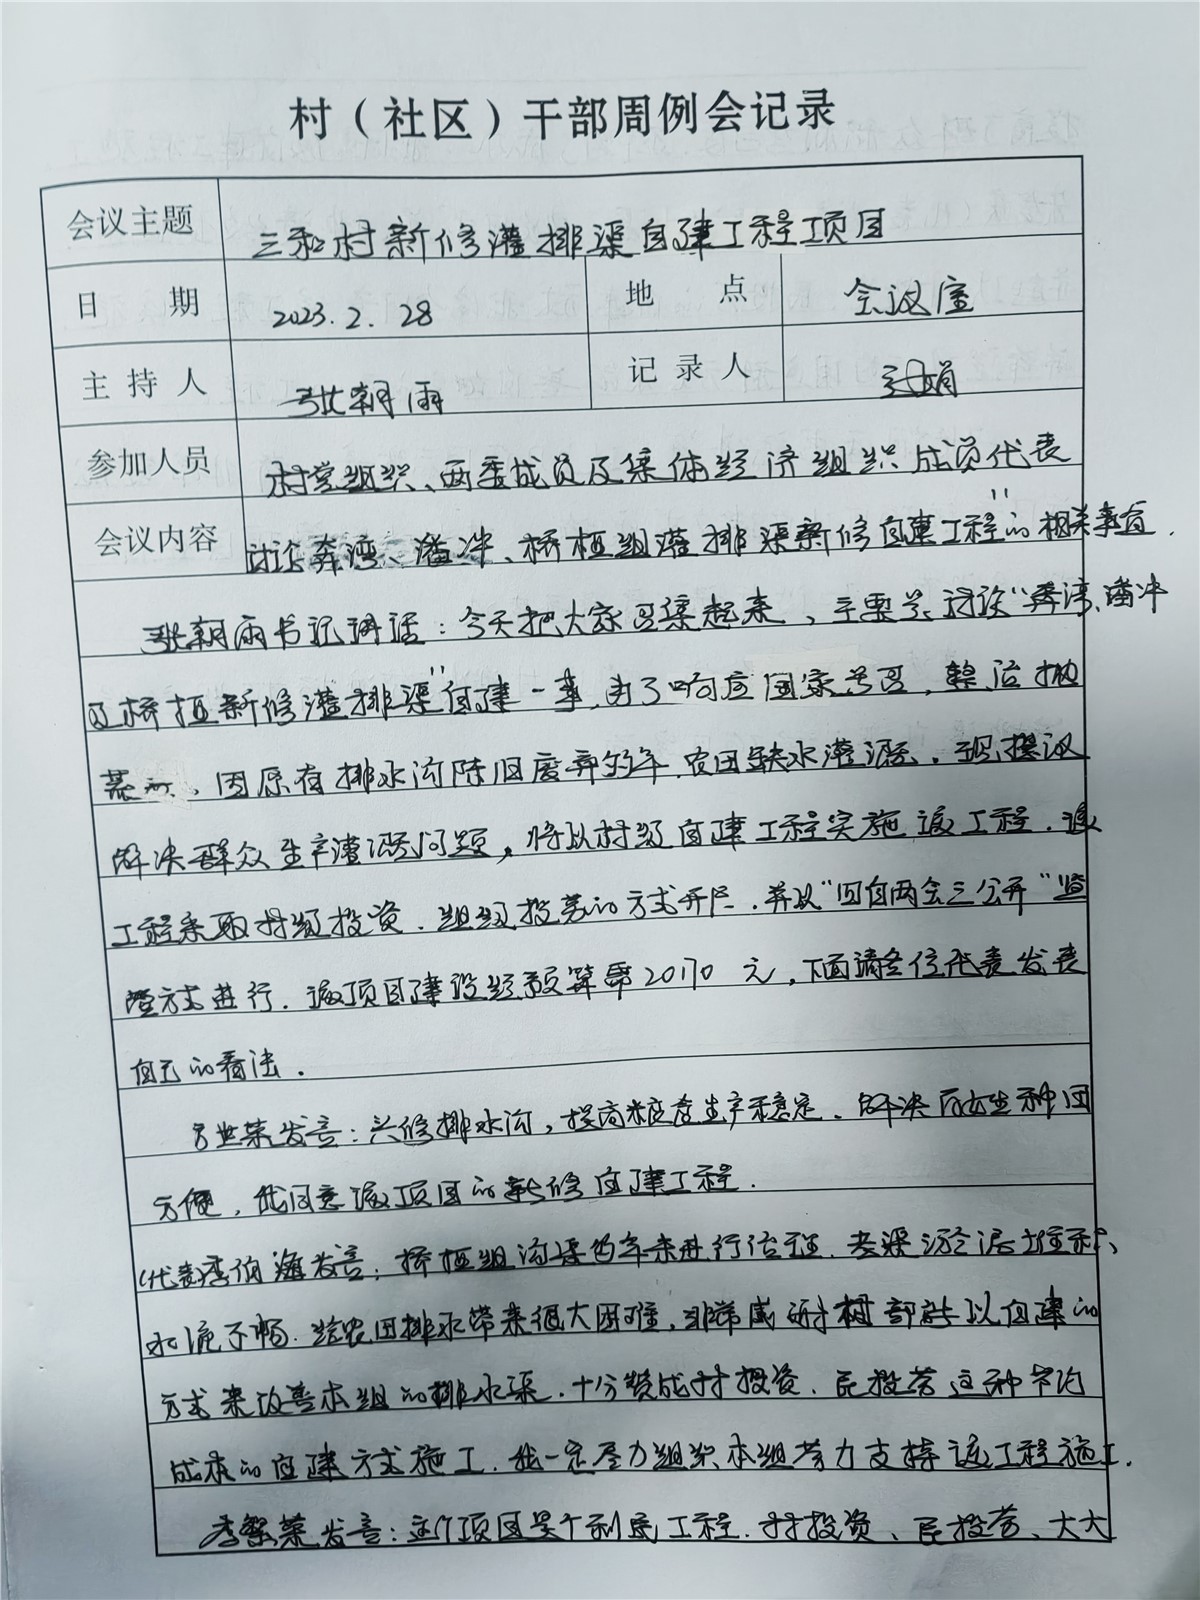 村（社区）干部周例会记录
会议主题 三和村新修灌排渠自建工程项目
日 期 2023.2.28 地 点 会议室
主 持 人 张朝雨 记 录 人 娟
参加人员 村党组织、两委成员及集体经济组织成员代表
会议内容 讨论弄湾、潘冲、桥梗组灌排渠新修自建工程"的相关事宜.
张朝雨书记讲话:今天把大家召集起来,主要是商谈"弄湾、潘冲
及桥梗新修灌排渠"自建一事,为了响应国家号召,整治抛
荒,因原有排水沟陈旧废弃多年,农田缺水灌溉.现提议
解决群众生产灌溉问题,将以村级自建工程实施该工程.该
工程采取村级投资.组级投劳的方式开展.并以"四自两会三公开"监
督方式进行.该项目建设经预算需20170元,下面请各位代表发表
自己的看法.
业荣发言:兴修排水沟,提高粮食生产稳定.解决百姓种田
方便,我同意该项目的新修自建工程.
代表李伯海发言:桥梗组沟渠多年未进行治理.老渠淤泥堆积、
水流不畅.给农田排水带来很大困难,非常感谢村部能以自建的
方式来改善本组的排水渠.十分赞成村投资、民投劳这种节约
成本的自建方式施工.我一定尽力组织本组劳力支持该工程施工.
李繁荣发言:这个项目是个利民工程.村投资、民投劳、大大